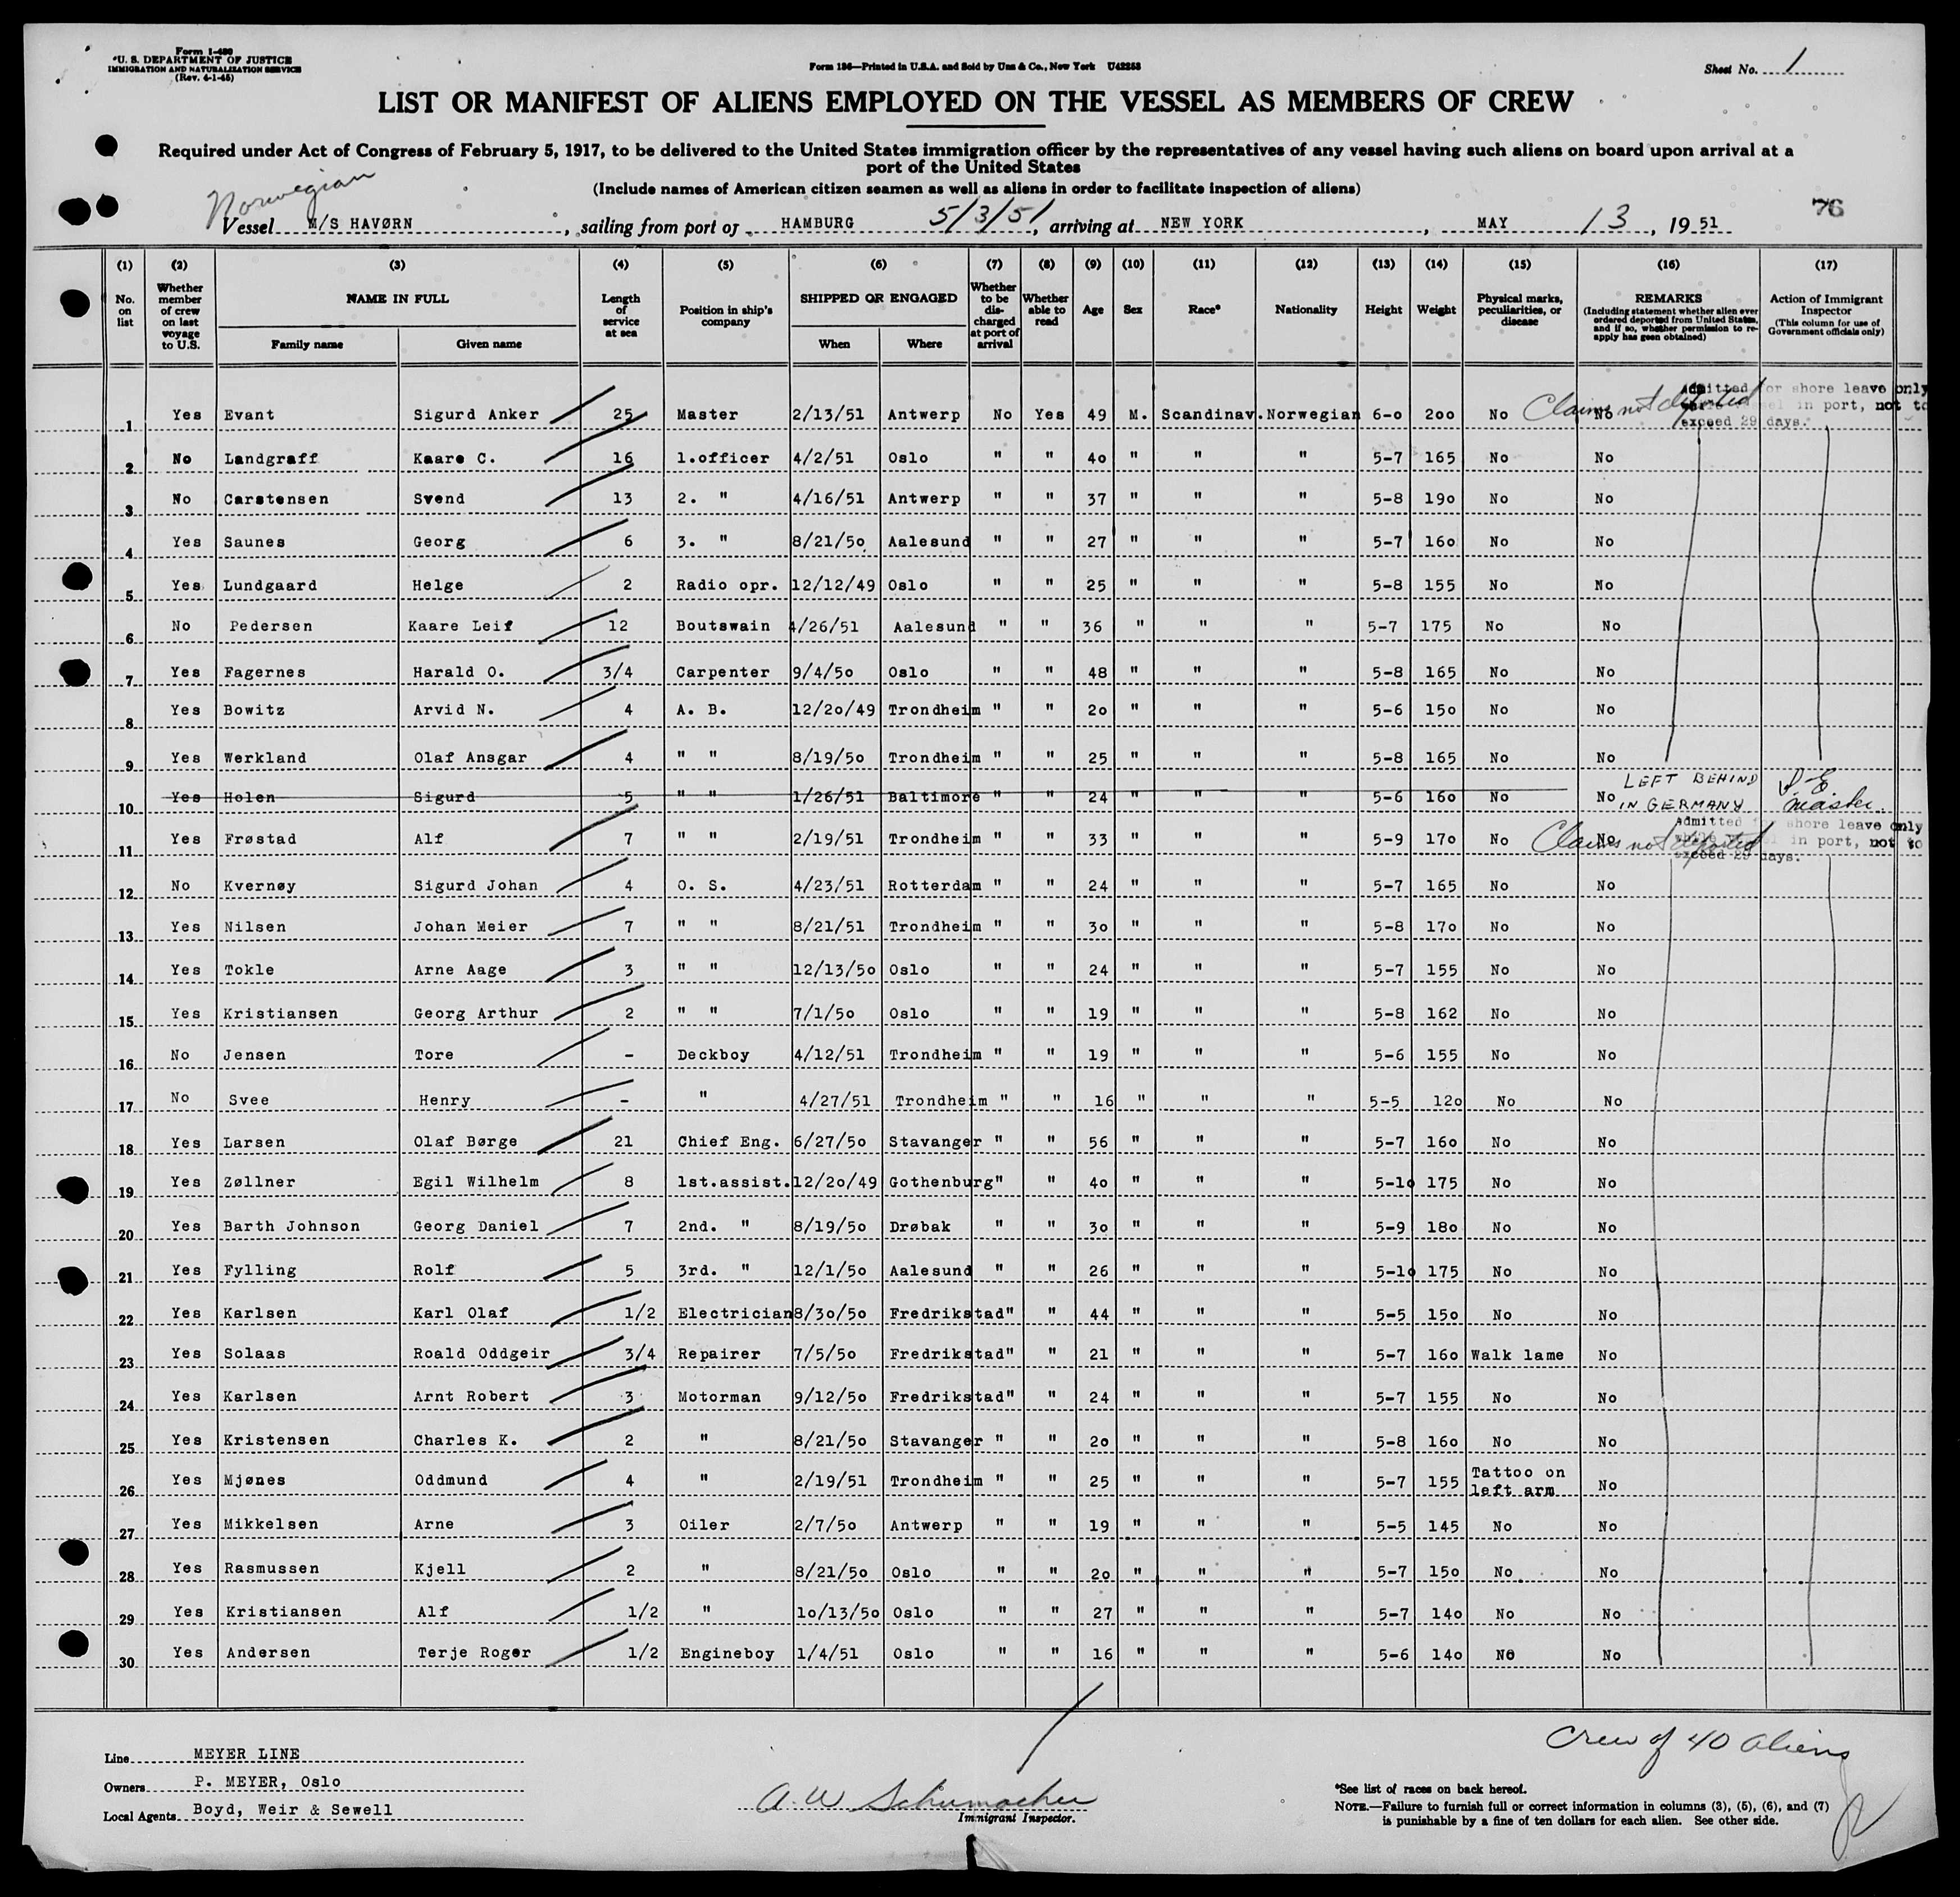 Form I-480
U. S. DEPARTMENT OF JUSTICE
IMMIGRATION AND NATURALIZATION SERVICE
(Rev. 4-1-45)
Form 136—Printed in U.S.A. and Sold by Unz & Co., New York U42253
Sheet No. 1
LIST OR MANIFEST OF ALIENS EMPLOYED ON THE VESSEL AS MEMBERS OF CREW
Required under Act of Congress of February 5, 1917, to be delivered to the United States immigration officer by the representatives of any vessel having such aliens on board upon arrival at a
port of the United States
(Include names of American citizen seamen as well as aliens in order to facilitate inspection of aliens)
Norwegian
76
Vessel M/S HAVØRN, sailing from port of HAMBURG 5/3/51, arriving at NEW YORK, MAY 13, 1951
(1) (2) (3) (4) (5) (6) (7) (8) (9) (10) (11) (12) (13) (14) (15) (16) (17)
No. on list
Whether member of crew on last voyage to U.S.
NAME IN FULL
Family name Given name
Length of service at sea
Position in ship's company
SHIPPED OR ENGAGED
When Where
Whether to be discharged at port of arrival
Whether able to read
Age
Sex
Race*
Nationality
Height
Weight
Physical marks, peculiarities, or disease
REMARKS
(Including statement whether alien ever ordered deported from United States, and if so, whether permission to re-apply has been obtained)
Action of Immigrant Inspector
(This column for use of Government officials only)
Admitted for shore leave only
while vessel in port, not to
exceed 29 days.
Claims not deported
1 Yes Evant Sigurd Anker 25 Master 2/13/51 Antwerp No Yes 49 M. Scandinav. Norwegian 6-0 200 No No
2 No Landgraff Kaare C. 16 1.officer 4/2/51 Oslo " " 40 " " " 5-7 165 No No
3 No Carstensen Svend 13 2. " 4/16/51 Antwerp " " 37 " " " 5-8 190 No No
4 Yes Saunes Georg 6 3. " 8/21/50 Aalesund " " 27 " " " 5-7 160 No No
5 Yes Lundgaard Helge 2 Radio opr. 12/12/49 Oslo " " 25 " " " 5-8 155 No No
6 No Pedersen Kaare Leif 12 Boutswain 4/26/51 Aalesund " " 36 " " " 5-7 175 No No
7 Yes Fagernes Harald O. 3/4 Carpenter 9/4/50 Oslo " " 48 " " " 5-8 165 No No
8 Yes Bowitz Arvid N. 4 A. B. 12/20/49 Trondheim " " 20 " " " 5-6 150 No No
9 Yes Werkland Olaf Ansgar 4 " " 8/19/50 Trondheim " " 25 " " " 5-8 165 No No
10 Yes Holen Sigurd 5 " " 1/26/51 Baltimore " " 24 " " " 5-6 160 No No LEFT BEHIND IN GERMANY S.E. Master.
Admitted for shore leave only
while vessel in port, not to
exceed 29 days.
Claims not deported
11 Yes Frøstad Alf 7 " " 2/19/51 Trondheim " " 33 " " " 5-9 170 No No
12 No Kvernøy Sigurd Johan 4 O. S. 4/23/51 Rotterdam " " 24 " " " 5-7 165 No No
13 Yes Nilsen Johan Meier 7 " " 8/21/51 Trondheim " " 30 " " " 5-8 170 No No
14 Yes Tokle Arne Aage 3 " " 12/13/50 Oslo " " 24 " " " 5-7 155 No No
15 Yes Kristiansen Georg Arthur 2 " " 7/1/50 Oslo " " 19 " " " 5-8 162 No No
16 No Jensen Tore - Deckboy 4/12/51 Trondheim " " 19 " " " 5-6 155 No No
17 No Svee Henry - " 4/27/51 Trondheim " " 16 " " " 5-5 120 No No
18 Yes Larsen Olaf Børge 21 Chief Eng. 6/27/50 Stavanger " " 56 " " " 5-7 160 No No
19 Yes Zøllner Egil Wilhelm 8 1st.assist. 12/20/49 Gothenburg " " 40 " " " 5-10 175 No No
20 Yes Barth Johnson Georg Daniel 7 2nd. " 8/19/50 Drøbak " " 30 " " " 5-9 180 No No
21 Yes Fylling Rolf 5 3rd. " 12/1/50 Aalesund " " 26 " " " 5-10 175 No No
22 Yes Karlsen Karl Olaf 1/2 Electrician 8/30/50 Fredrikstad " " 44 " " " 5-5 150 No No
23 Yes Solaas Roald Oddgeir 3/4 Repairer 7/5/50 Fredrikstad " " 21 " " " 5-7 160 Walk lame No
24 Yes Karlsen Arnt Robert 3 Motorman 9/12/50 Fredrikstad " " 24 " " " 5-7 155 No No
25 Yes Kristensen Charles K. 2 " 8/21/50 Stavanger " " 20 " " " 5-8 160 No No
26 Yes Mjønes Oddmund 4 " 2/19/51 Trondheim " " 25 " " " 5-7 155 Tattoo on left arm No
27 Yes Mikkelsen Arne 3 Oiler 2/7/50 Antwerp " " 19 " " " 5-5 145 No No
28 Yes Rasmussen Kjell 2 " 8/21/50 Oslo " " 20 " " " 5-7 150 No No
29 Yes Kristiansen Alf 1/2 " 10/13/50 Oslo " " 27 " " " 5-7 140 No No
30 Yes Andersen Terje Roger 1/2 Engineboy 1/4/51 Oslo " " 16 " " " 5-6 140 No No
Crew of 40 aliens
Line MEYER LINE
Owners P. MEYER, Oslo
Local Agents Boyd, Weir & Sewell
A. W. Schumacher
Immigrant Inspector.
*See list of races on back hereof.
NOTE.—Failure to furnish full or correct information in columns (3), (5), (6), and (7)
is punishable by a fine of ten dollars for each alien. See other side.